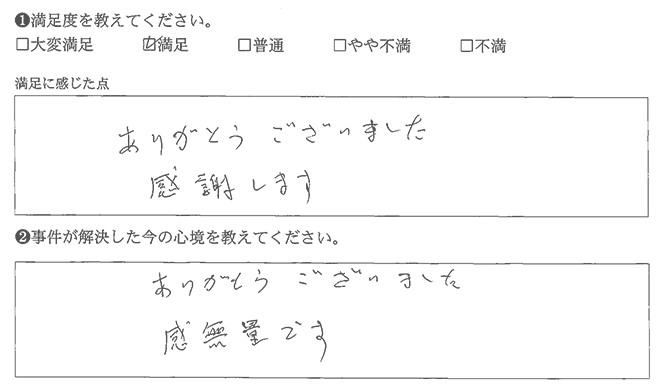 ❶満足度を教えてください。
□大変満足 ☑満足 □普通 □やや不満 □不満
満足に感じた点
ありがとうございました
感謝します
❷事件が解決した今の心境を教えてください。
ありがとうございました
感無量です